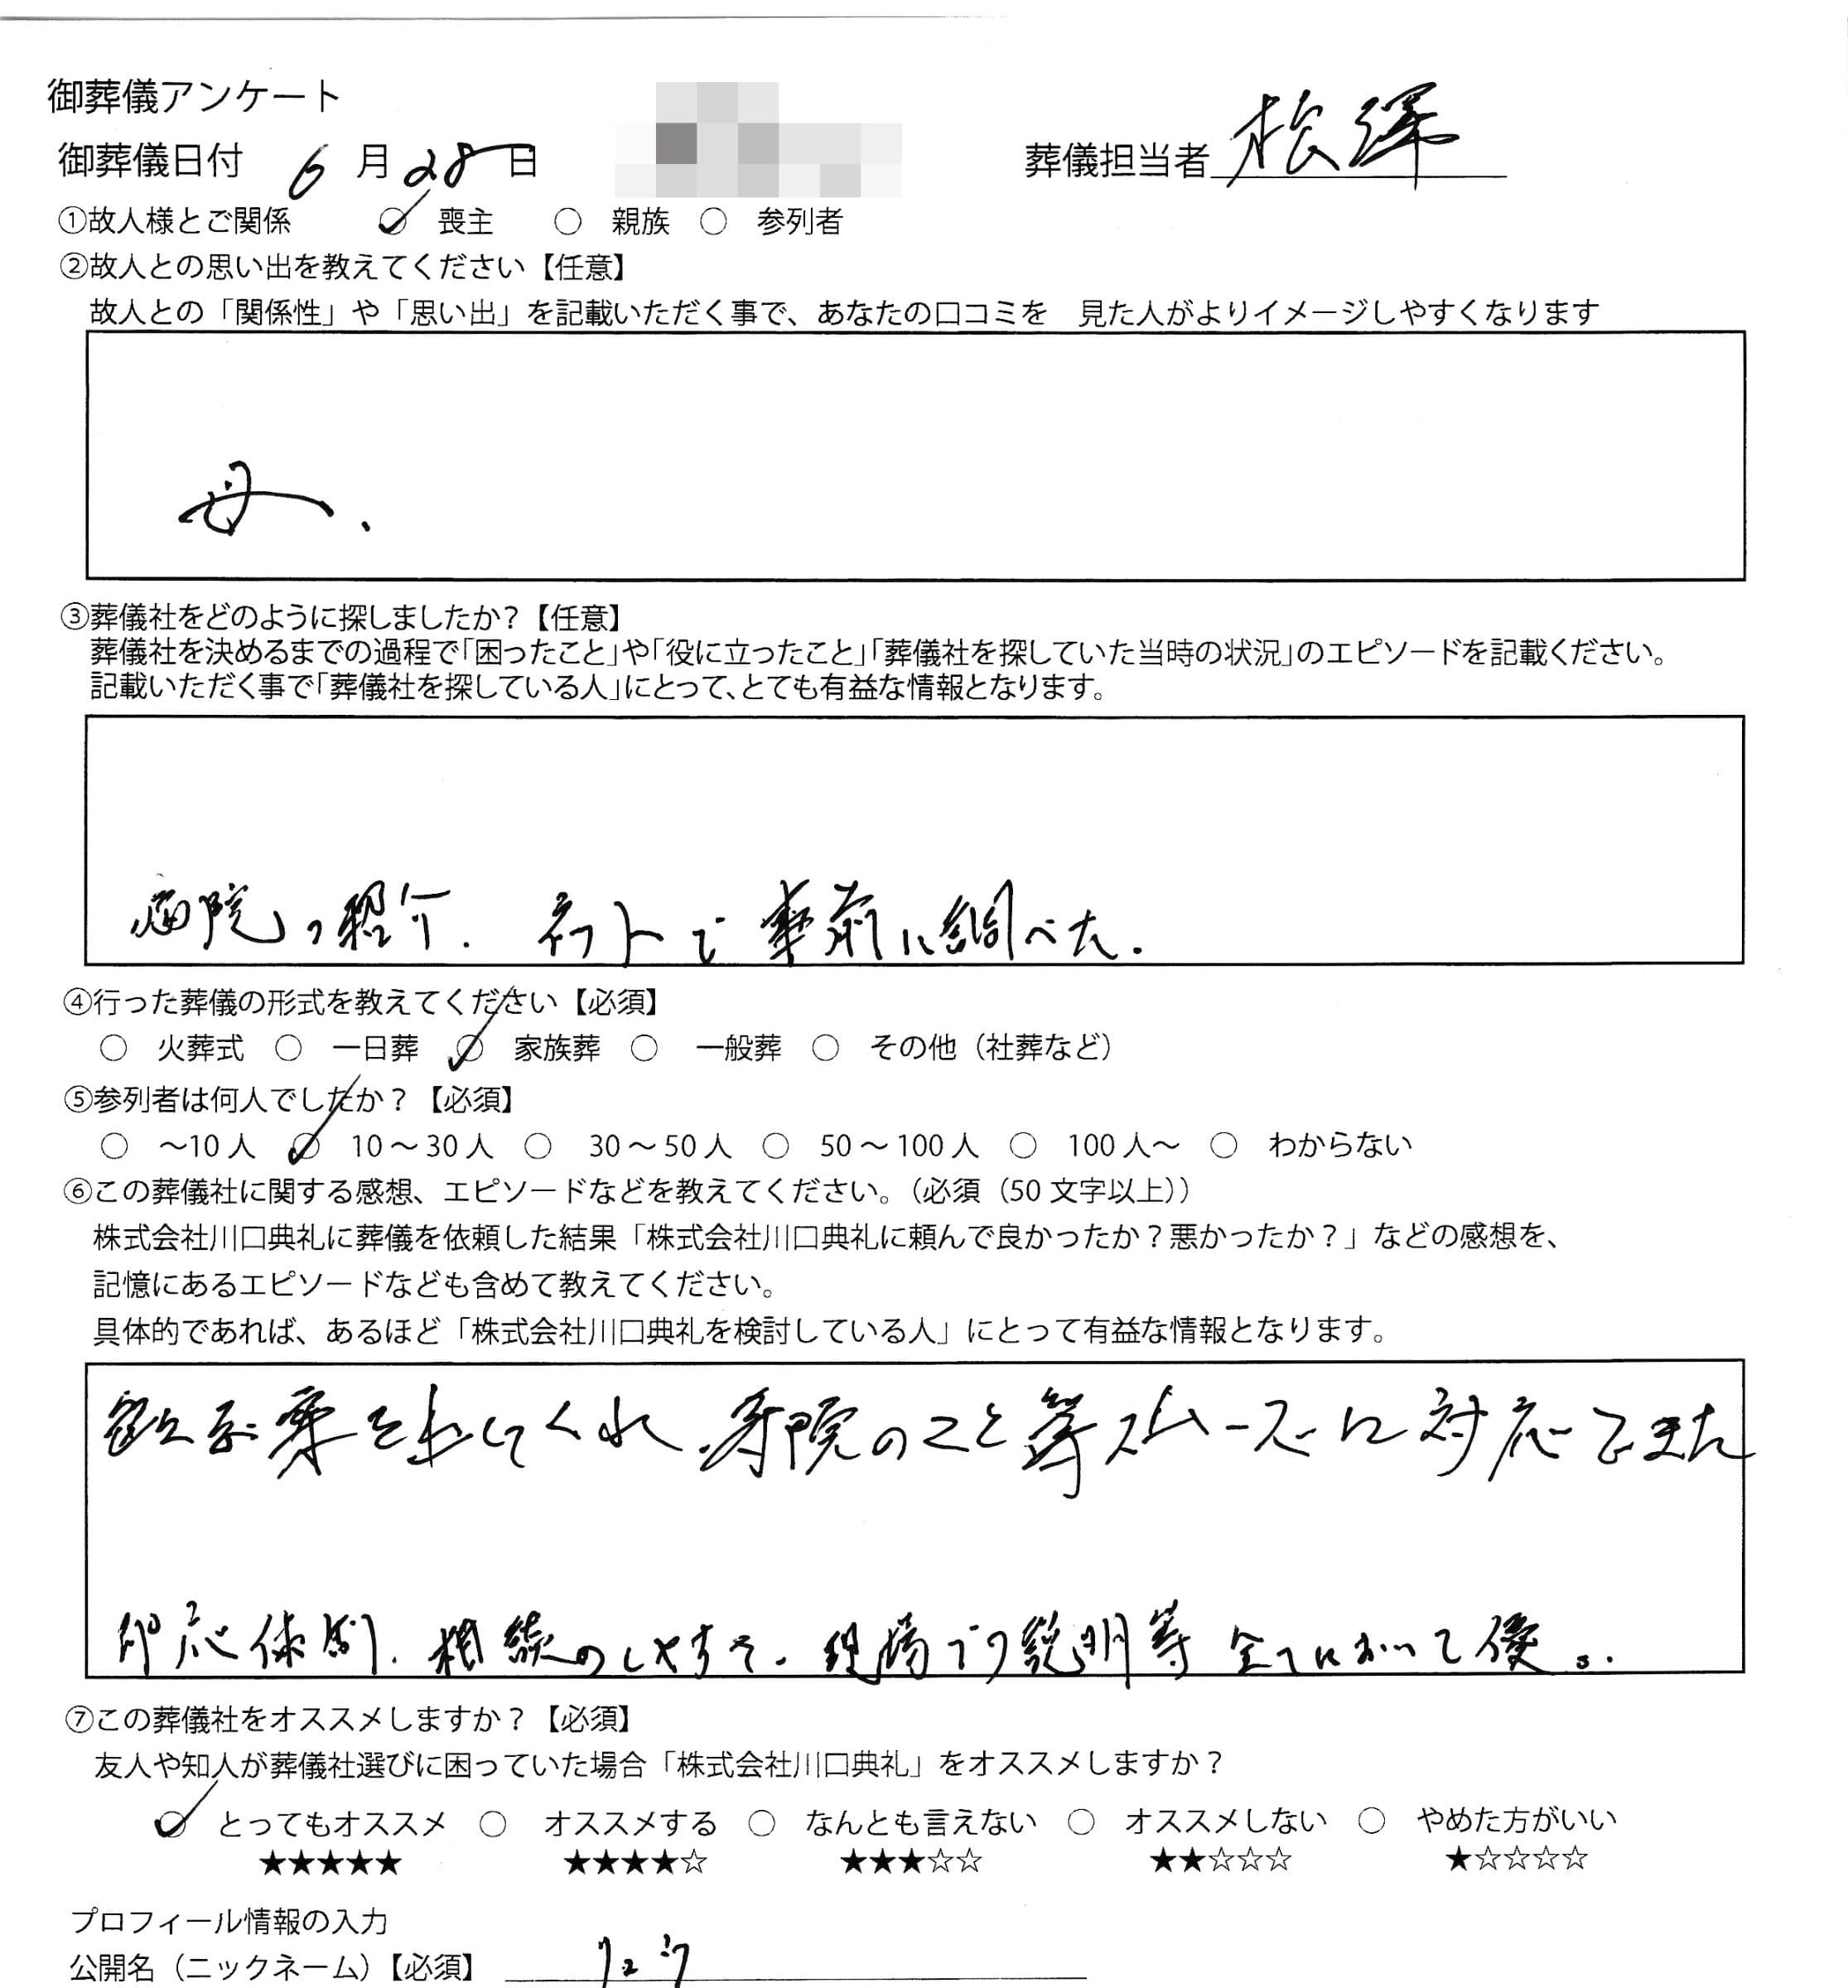 御葬儀アンケート
御葬儀日付 6月28日
葬儀担当者 根澤
①故人様とご関係 ○ 喪主 ○ 親族 ○ 参列者
②故人との思い出を教えてください【任意】
故人との「関係性」や「思い出」を記載いただく事で、あなたの口コミを 見た人がよりイメージしやすくなります
母.
③葬儀社をどのように探しましたか?【任意】
葬儀社を決めるまでの過程で「困ったこと」や「役に立ったこと」「葬儀社を探していた当時の状況」のエピソードを記載ください。
記載いただく事で「葬儀社を探している人」にとって、とても有益な情報となります。
病院の紹介. ネットで事前に調べた.
④行った葬儀の形式を教えてください【必須】
○ 火葬式 ○ 一日葬 ○ 家族葬 ○ 一般葬 ○ その他（社葬など）
⑤参列者は何人でしたか？【必須】
○ ～10人 ○ 10～30人 ○ 30～50人 ○ 50～100人 ○ 100人～ ○ わからない
⑥この葬儀社に関する感想、エピソードなどを教えてください。（必須（50文字以上））
株式会社川口典礼に葬儀を依頼した結果「株式会社川口典礼に頼んで良かったか？悪かったか？」などの感想を、
記憶にあるエピソードなども含めて教えてください。
具体的であれば、あるほど「株式会社川口典礼を検討している人」にとって有益な情報となります。
案を出してくれ、寺院のこと等スムーズに対応できた
即応体制. 相談のしやすさ. 現場での説明等 全てにおいて優.
⑦この葬儀社をオススメしますか？【必須】
友人や知人が葬儀社選びに困っていた場合「株式会社川口典礼」をオススメしますか？
○ とってもオススメ ○ オススメする ○ なんとも言えない ○ オススメしない ○ やめた方がいい
★★★★★ ★★★★☆ ★★★☆☆ ★★☆☆☆ ★☆☆☆☆
プロフィール情報の入力
公開名（ニックネーム）【必須】